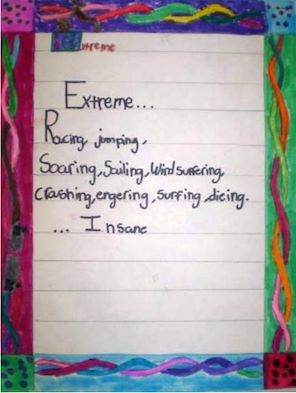 Extreme
Extreme...
Racing, jomping,
Soaring, Sailing, Wind suffering,
Crashing, engering, surfing, dieing.
... Insane